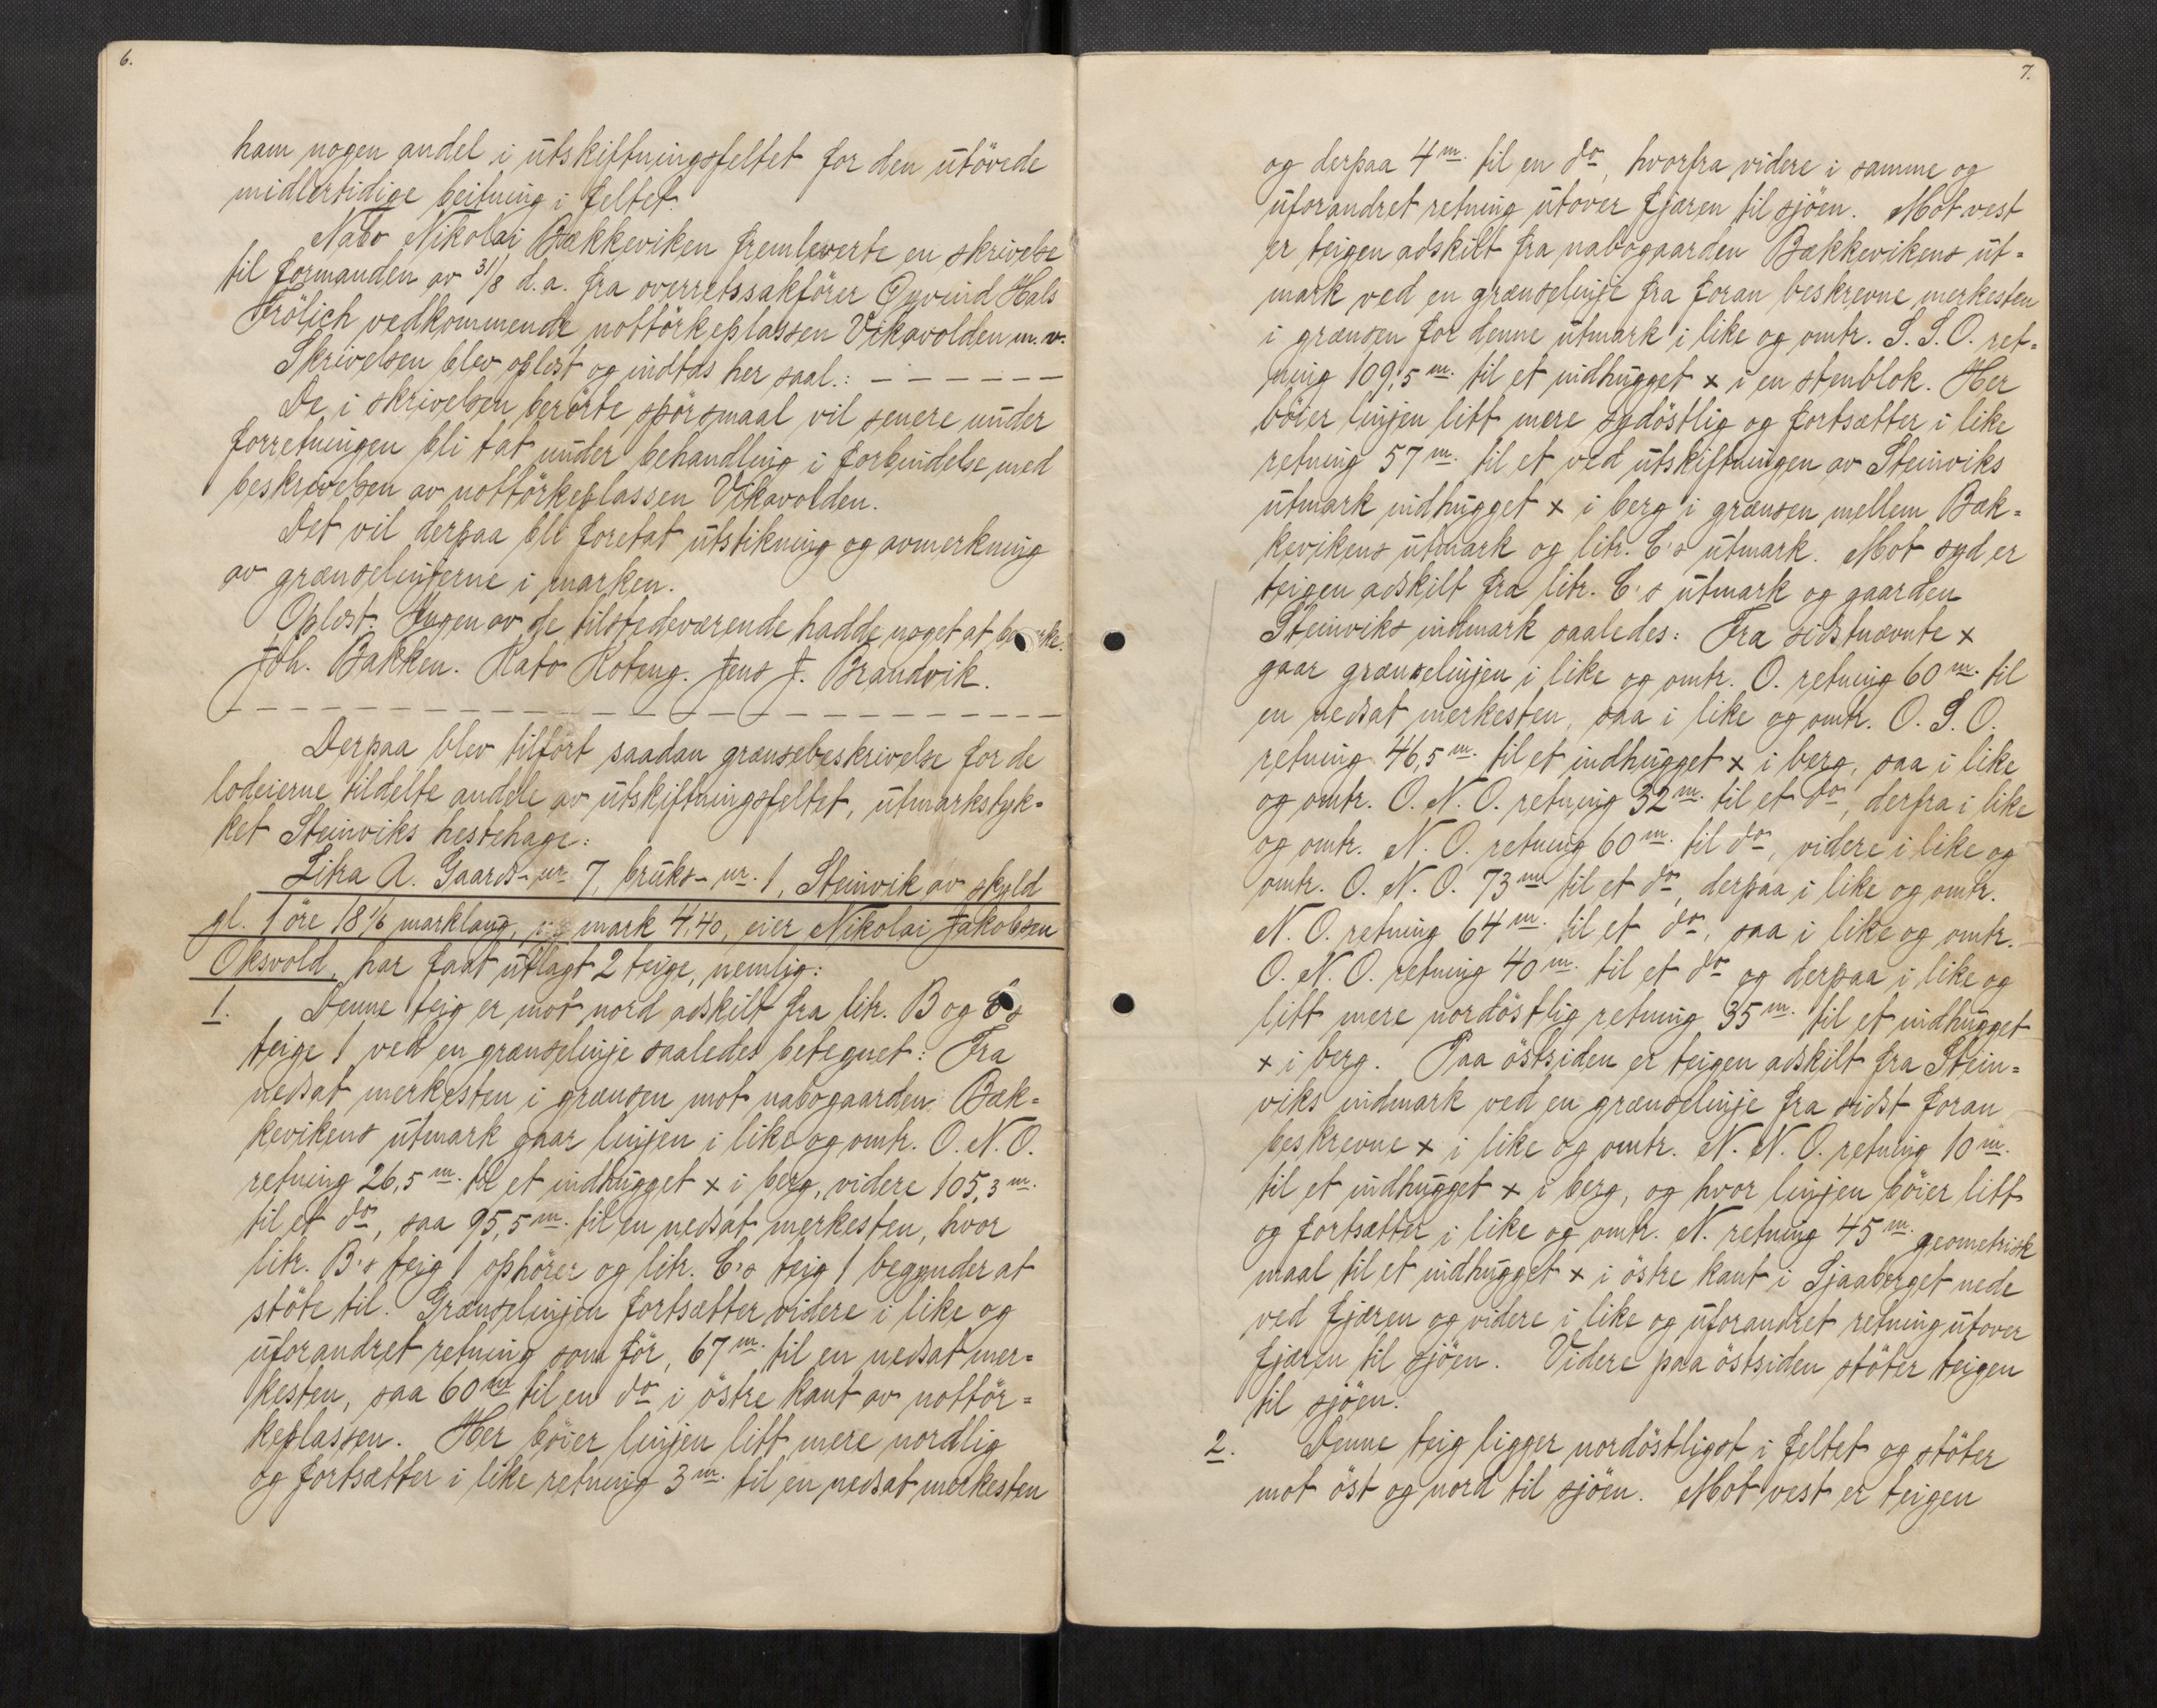 6.
ham nogen andel i utskiftningsfeltet for den utövede
midlertidige beitning i feltet.
Nabo Nikolai Bækkeviken fremleverte en skrivelse
til formanden av 31/8 d.a. fra overretssakförer Öyvind Hals
Frölich vedkommende nottörkeplassen Vikavolden m.v.
Skrivelsen blev oplest og indtas her saal.: — — — — — —
De i skrivelsen berörte spörsmaal vil senere under
forretningen bli tat under behandling i forbindelse med
beskrivelsen av nottörkeplassen Vikavolden.
Det vil derpaa bli foretat utstikning og avmerkning
av grænselinjerne i marken.
Oplest. Ingen av de tilstedeværende hadde noget at
Joh. Bakken. Kato Koteng. Jens J. Brandvik.
Derpaa blev tilfört saadan grænsebeskrivelse for de
lodeierne tildelte andele av utskiftningsfeltet, utmarkstyk=
ket Steinviks hestehage:
Litra A. Gaards-nr 7, bruks-nr. 1, Steinvik av skyld
gl. 1 öre 18 1/6 marklaug, mark 4,40, eier Nikolai Jakobsen
Oksvold, har faat utlagt 2 teige, nemlig:
1. Denne teig er mot nord adskilt fra litr. B og C's
teige 1 ved en grænselinje saaledes betegnet: Fra
nedsat merkesten i grænsen mot nabogaarden Bæk=
kevikens utmark gaar linjen i like og omtr. O.N.O.
retning 26,5 m. til et indhugget x i berg, videre 105,3 m.
til et do, saa 95,5 m. til en nedsat merkesten, hvor
litr. B's teig 1 ophörer og litr. C's teig 1 begynder at
stöte til. Grænselinjen fortsætter videre i like og
uforandret retning som för, 67 m. til en nedsat mer=
kesten, saa 60 m til en do i östre kant av nottör=
keplassen. Her böier linjen litt mere nordlig
og fortsætter i like retning 3 m. til en nedsat merkesten
7.
og derpaa 4 m. til en do, hvorfra videre i samme og
uforandret retning utover fjæren til sjöen. Mot vest
er teigen adskilt fra nabogaarden Bækkevikens ut=
mark ved en grænselinje fra foran beskrevne merkesten
i grænsen for denne utmark i like og omtr. S.S.O. ret=
ning 109,5 m. til et indhugget x i en stenblok. Her
böier linjen litt mere sydöstlig og fortsætter i like
retning 57 m. til et ved utskiftningen av Steinviks
utmark indhugget x i berg i grænsen mellem Bæk=
kevikens utmark og litr. C's utmark. Mot syd er
teigen adskilt fra litr. C's utmark og gaarden
Steinviks indmark saaledes: Fra sidstnævnte x
gaar grænselinjen i like og omtr. O. retning 60 m. til
en nedsat merkesten, saa i like og omtr. O.S.O.
retning 46,5 m. til et indhugget x i berg, saa i like
og omtr. O.N.O. retning 32 m. til et do, derfra i like
og omtr. N.O. retning 60 m. til do, videre i like og
omtr. O.N.O. 73 m til et do, derpaa i like og omtr.
N.O. retning 64 m. til et do, saa i like og omtr.
O.N.O. retning 40 m. til et do og derpaa i like og
litt mere nordöstlig retning 35 m. til et indhugget
x i berg. Paa östsiden er teigen adskilt fra Stein=
viks indmark ved en grænselinje fra sidst foran
beskrevne x i like og omtr. N.N.O. retning 10 m.
til et indhugget x i berg, og hvor linjen böier litt
og fortsætter i like og omtr. N. retning 45 m. geometrisk
maal til et indhugget x i östre kant i Sjaaberget nede
ved fjæren og videre i like og uforandret retning utover
fjæren til sjöen. Videre paa östsiden stöter teigen
til sjöen.
2. Denne teig ligger nordöstligst i feltet og stöter
mot öst og nord til sjöen. Mot vest er teigen